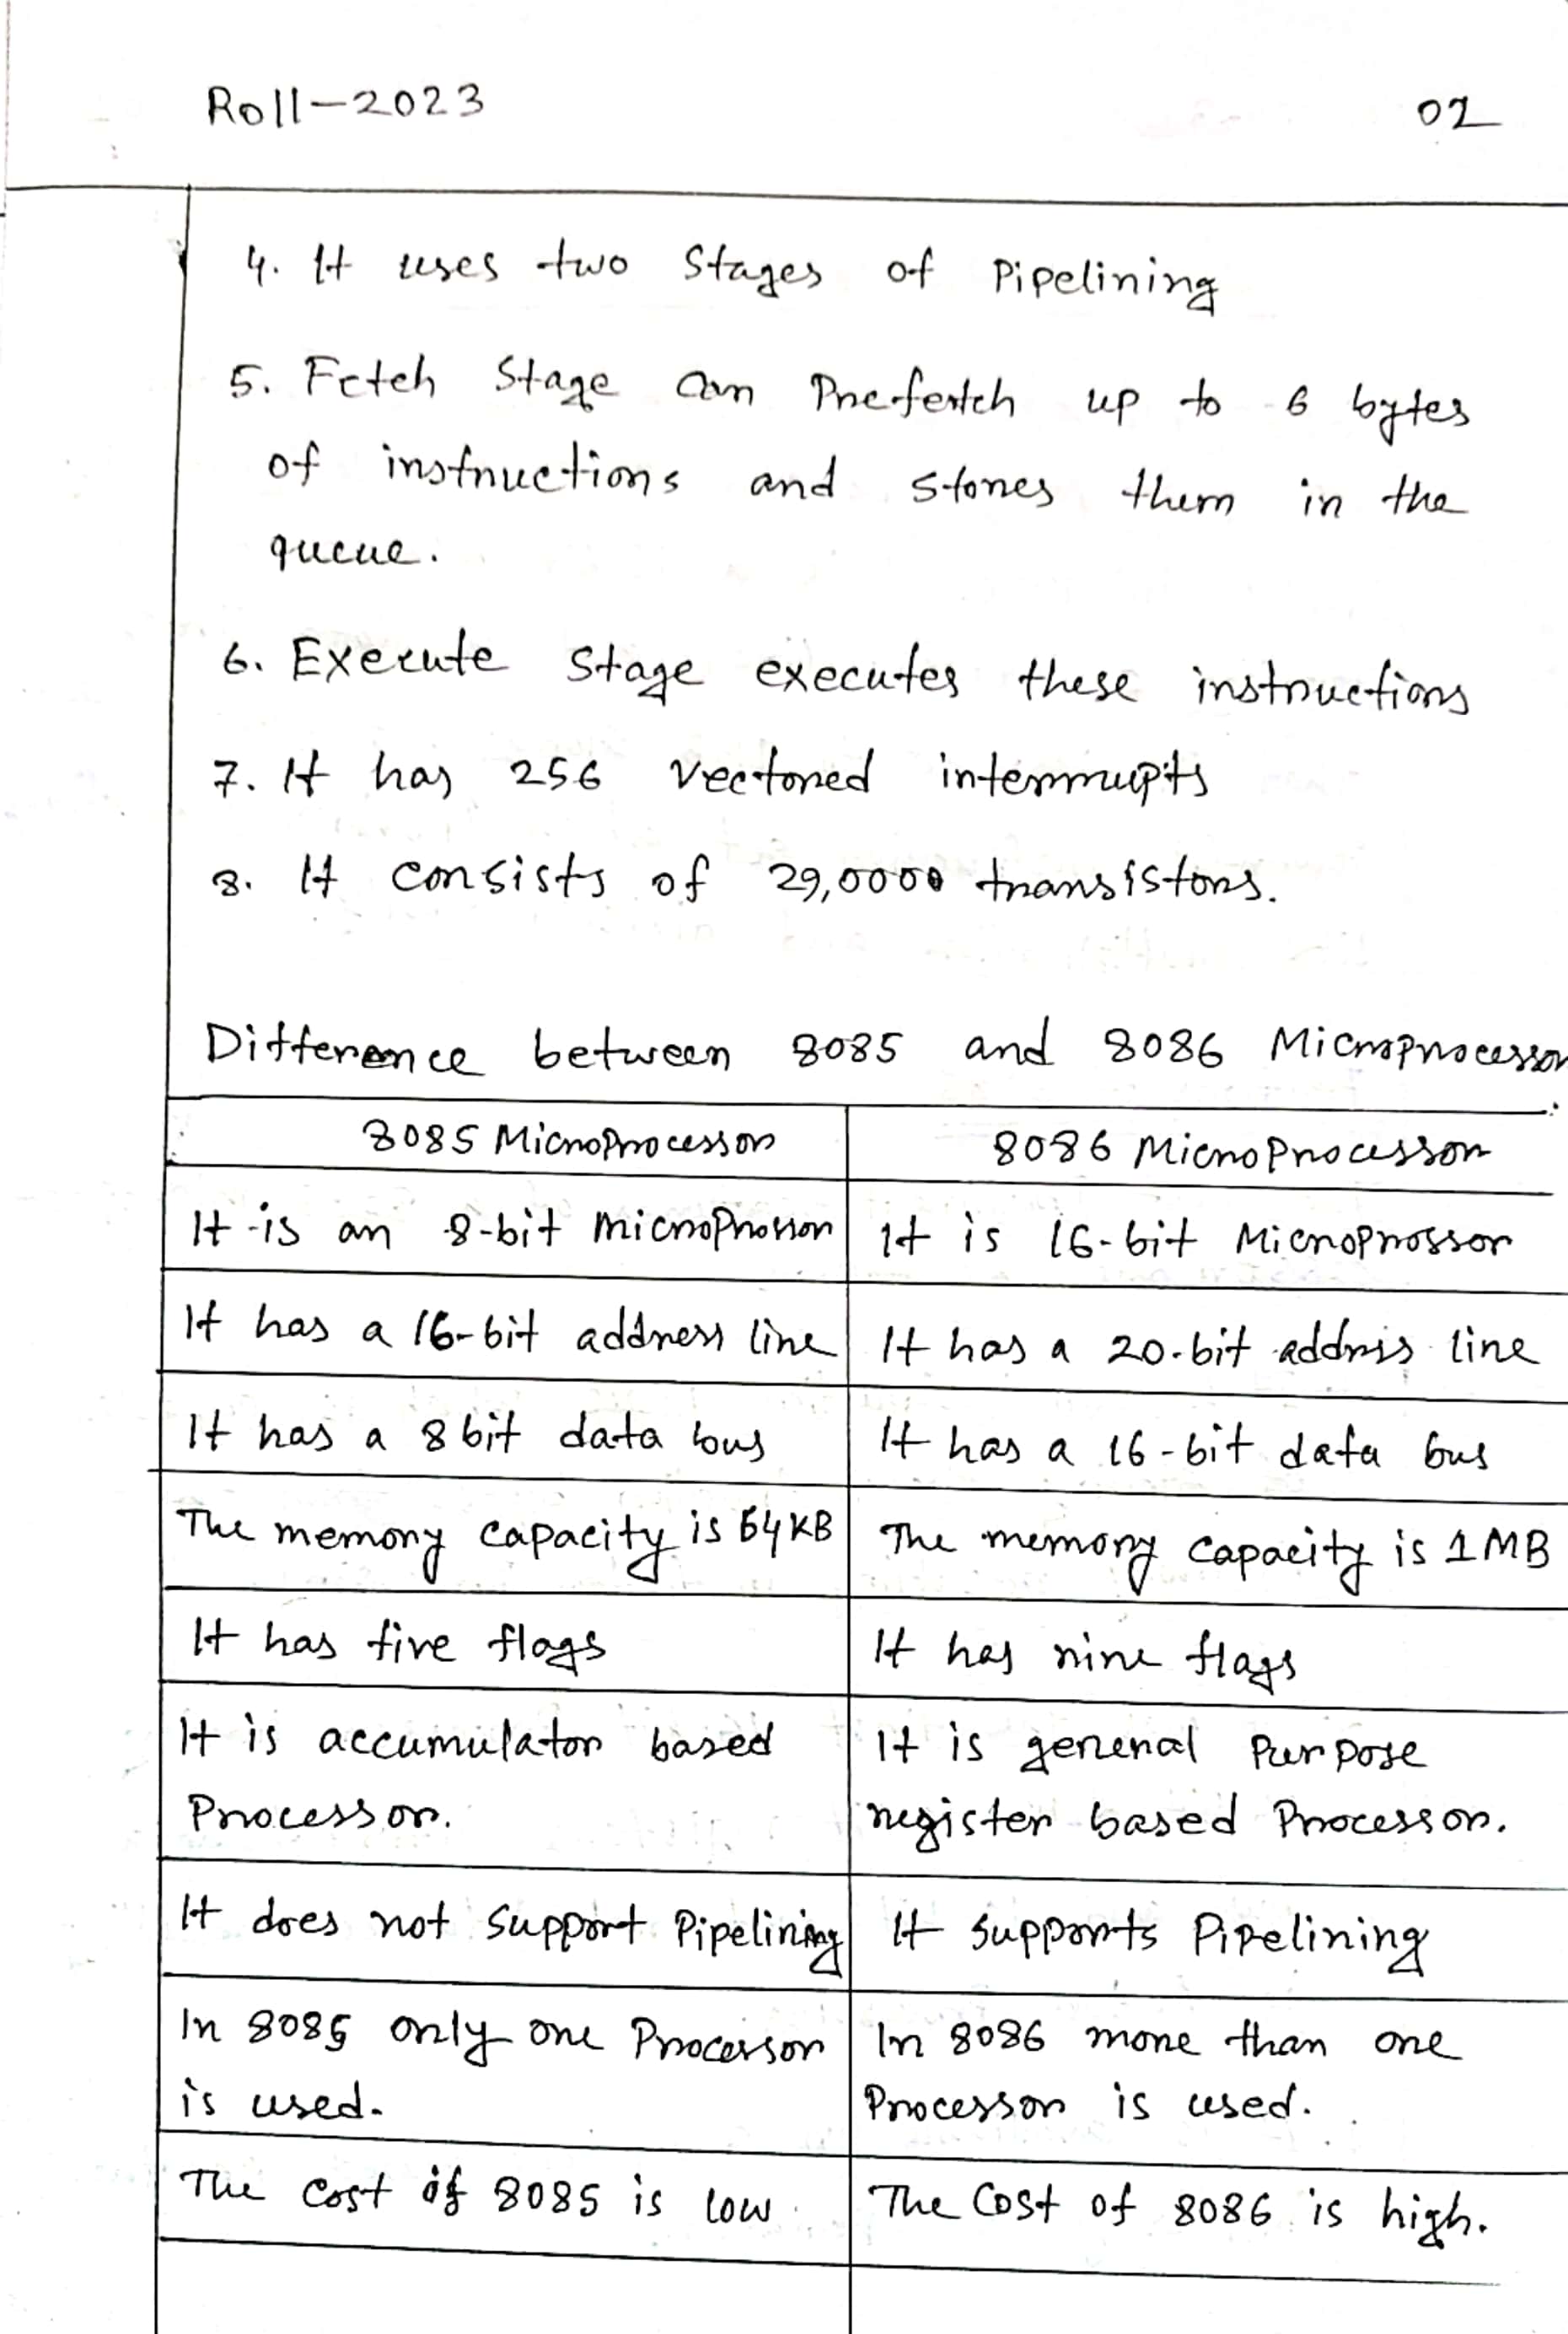 Roll-2023
02
4. It uses two Stages of Pipelining
5. Fetch Stage can Prefertch up to 6 bytes
of instructions and stores them in the
queue.
6. Execute Stage executes these instructions
7. It has 256 vectored interrupts
8. It consists of 29,0000 transistors.
Difference between 8085 and 8086 Microprocessor
8085 MicroProcessor
8086 MicroProcessor
It is an 8-bit MicroProssor
It is 16-bit Microprossor
It has a 16-bit address line
It has a 20-bit address line
It has a 8 bit data bus
It has a 16-bit data bus
The memory capacity is 64KB
The memory capacity is 1MB
It has five flags
It has nine flags
It is accumulator based
Processor.
It is general Purpose
register based Processor.
It does not support Pipelining
It supports Pipelining
In 8085 only one Processor
is used.
In 8086 more than one
Processor is used.
The cost of 8085 is low
The Cost of 8086 is high.